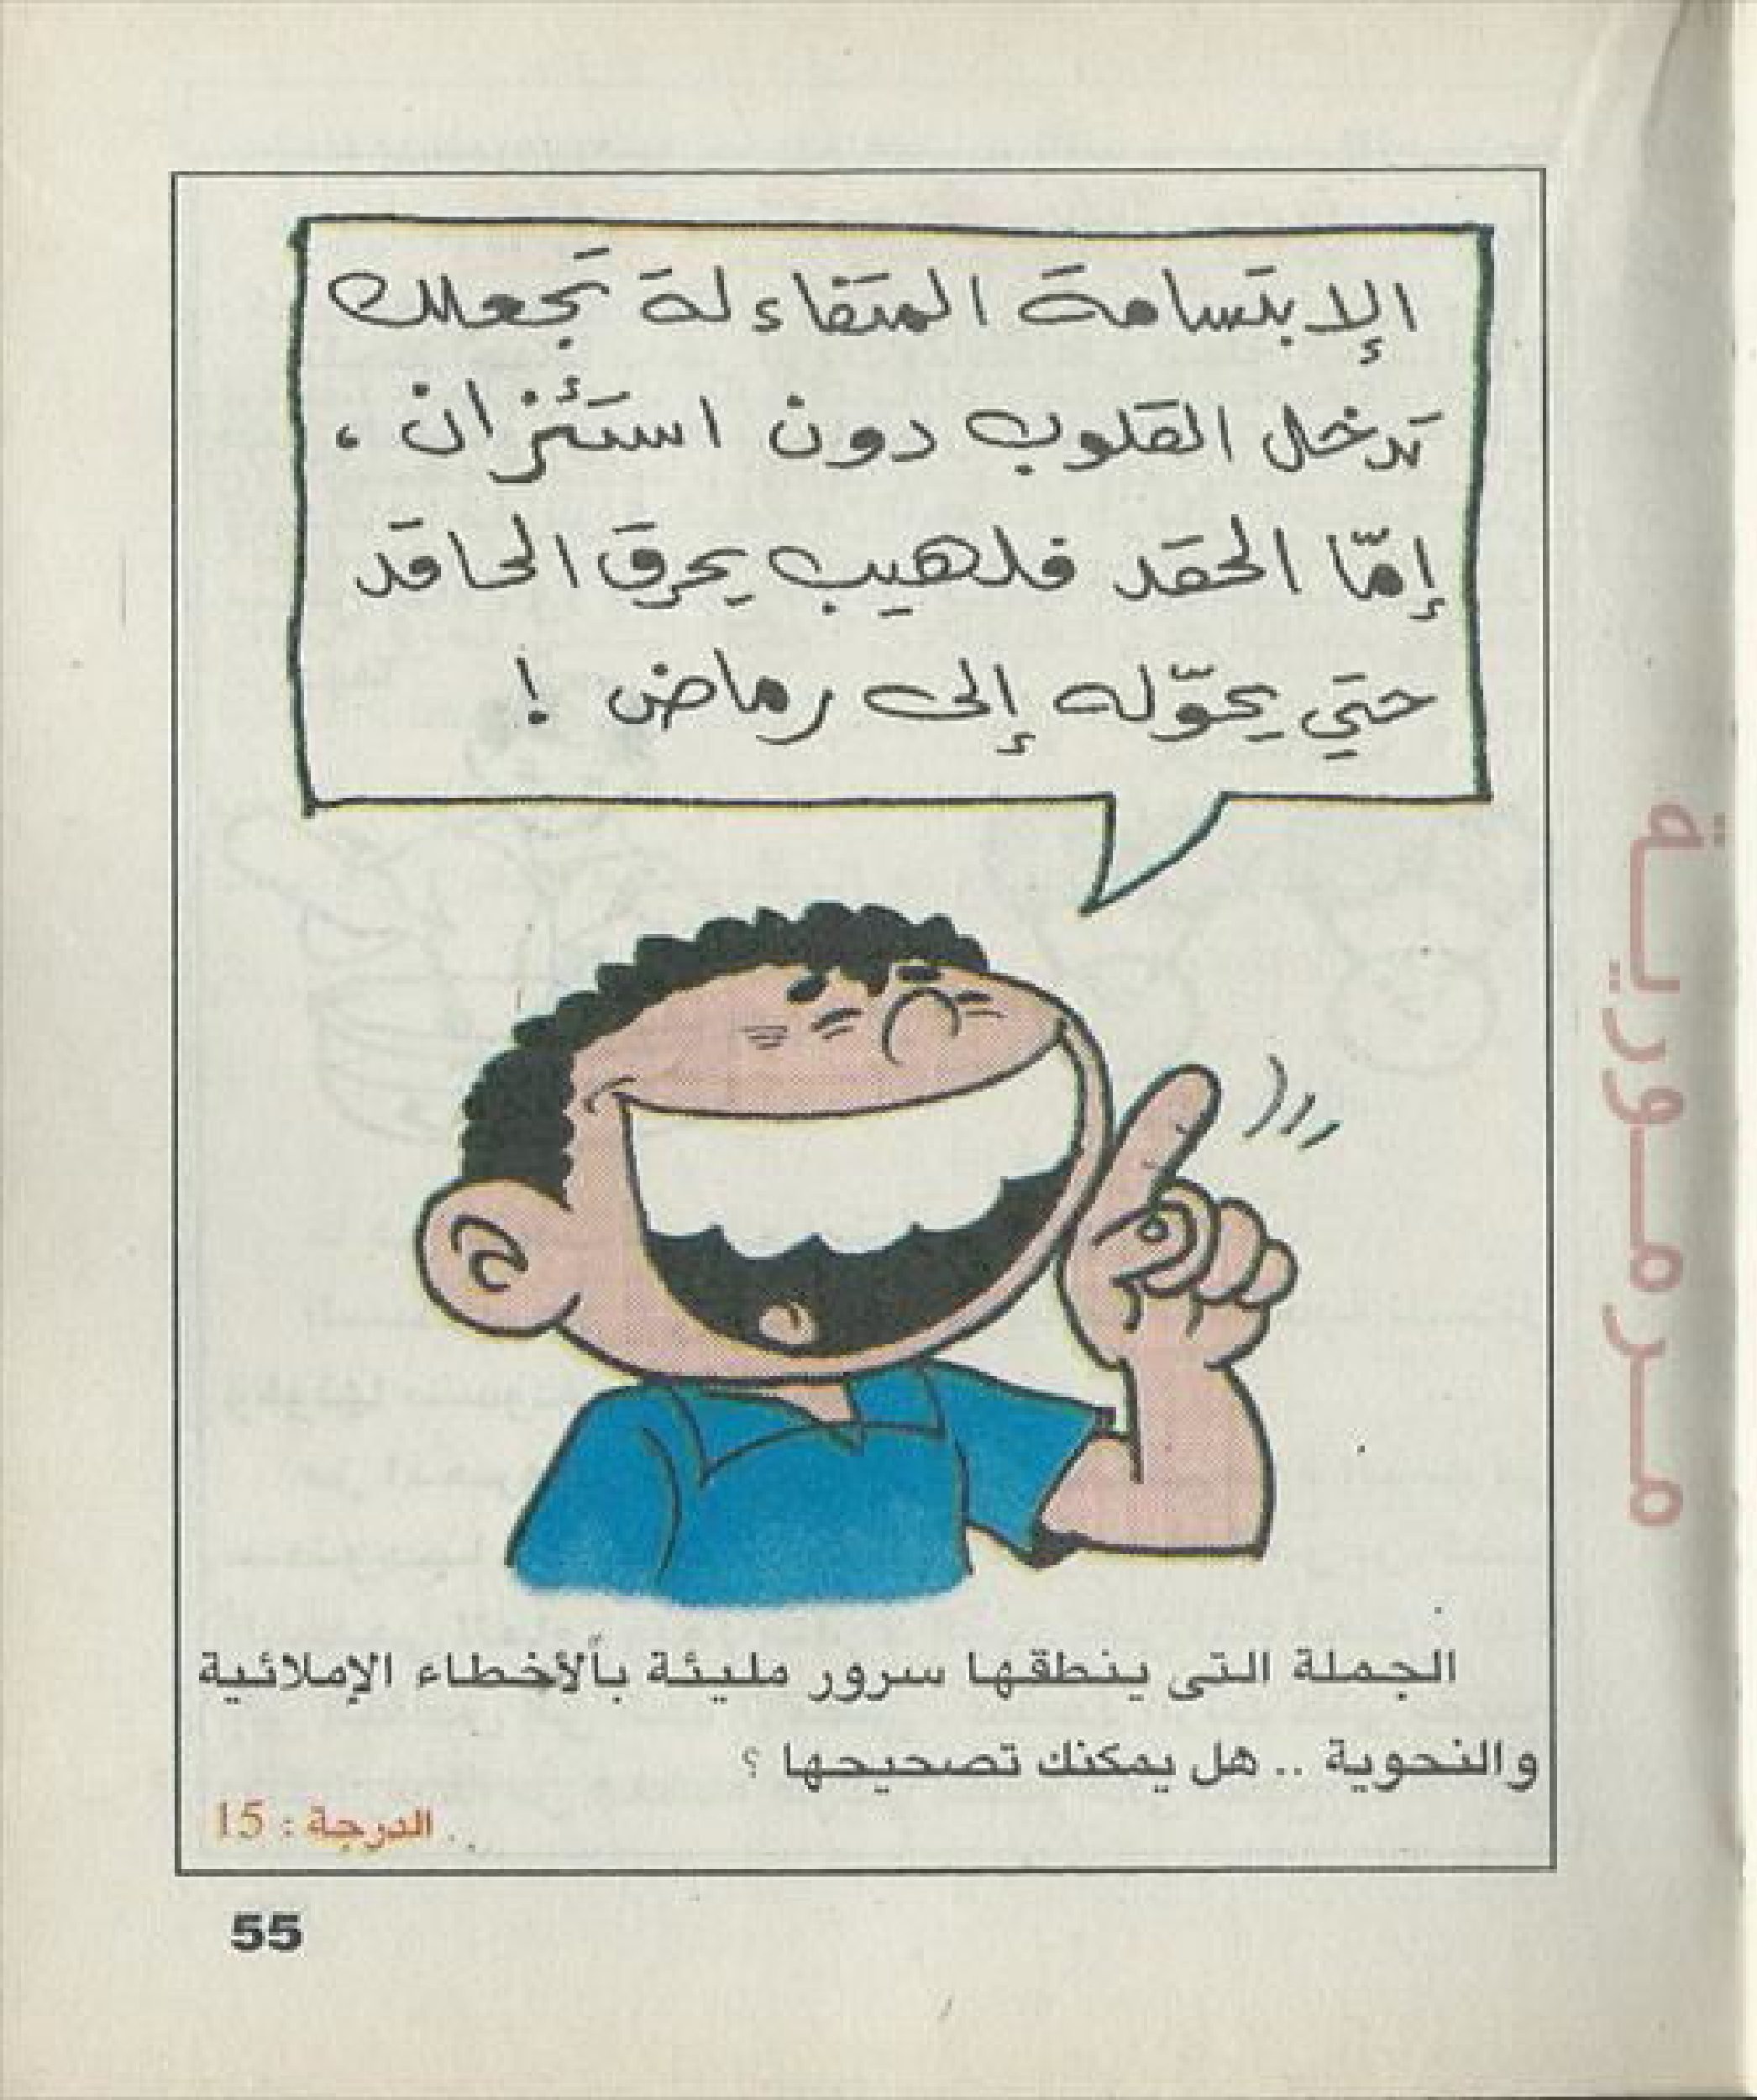 الإبتسامة المتفاءلة تجعلك
تدخل القلوب دون استئزان ،
إمّا الحقد فلهيب يحرق الحاقد
حتي يحوّله إلى رماض !
الجملة التى ينطقها سرور مليئة بالأخطاء الإملائية
والنحوية .. هل يمكنك تصحيحها ؟
الدرجة : 15
55
مرمورية